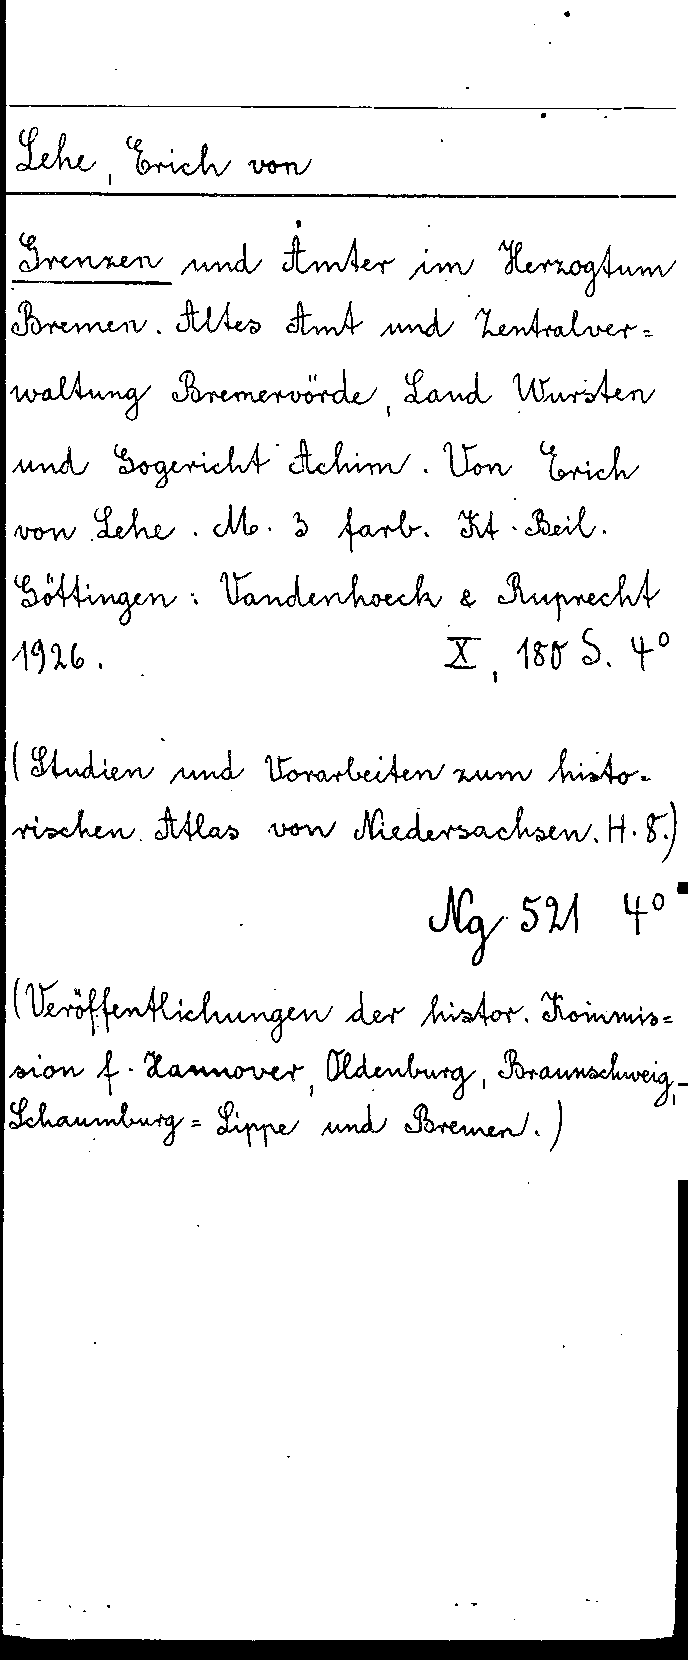 Lehe, Erich von
Grenzen und Ämter im Herzogtum
Bremen. Altes Amt und Zentralver=
waltung Bremervörde, Land Wursten
und Gogericht Achim. Von Erich
von Lehe. M. 3 farb. Kt. Beil.
Göttingen: Vandenhoeck & Ruprecht
1926. X, 180 S. 4°
(Studien und Vorarbeiten zum histo-
rischen Atlas von Niedersachsen. H. 8.)
Ng 521 4°
(Veröffentlichungen der histor. Kommis=
sion f. Hannover, Oldenburg, Braunschweig,
Schaumburg=Lippe und Bremen.)